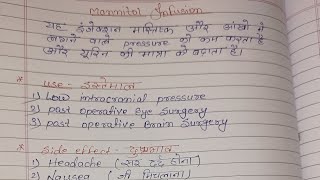 Mannitol Infusion
यह इंजेक्शन मस्तिष्क और आंखों में
बढ़ने वाले pressure को कम करता है
और यूरिन की मात्रा को बढ़ाता है।
* use - इस्तेमाल
1) Low intracranial pressure
2) past operative eye surgery
3) past operative Brain surgery
* Side effect - दुष्प्रभाव
1) Headache (सर दर्द होना)
2) Nausea (जी मिचलाना)